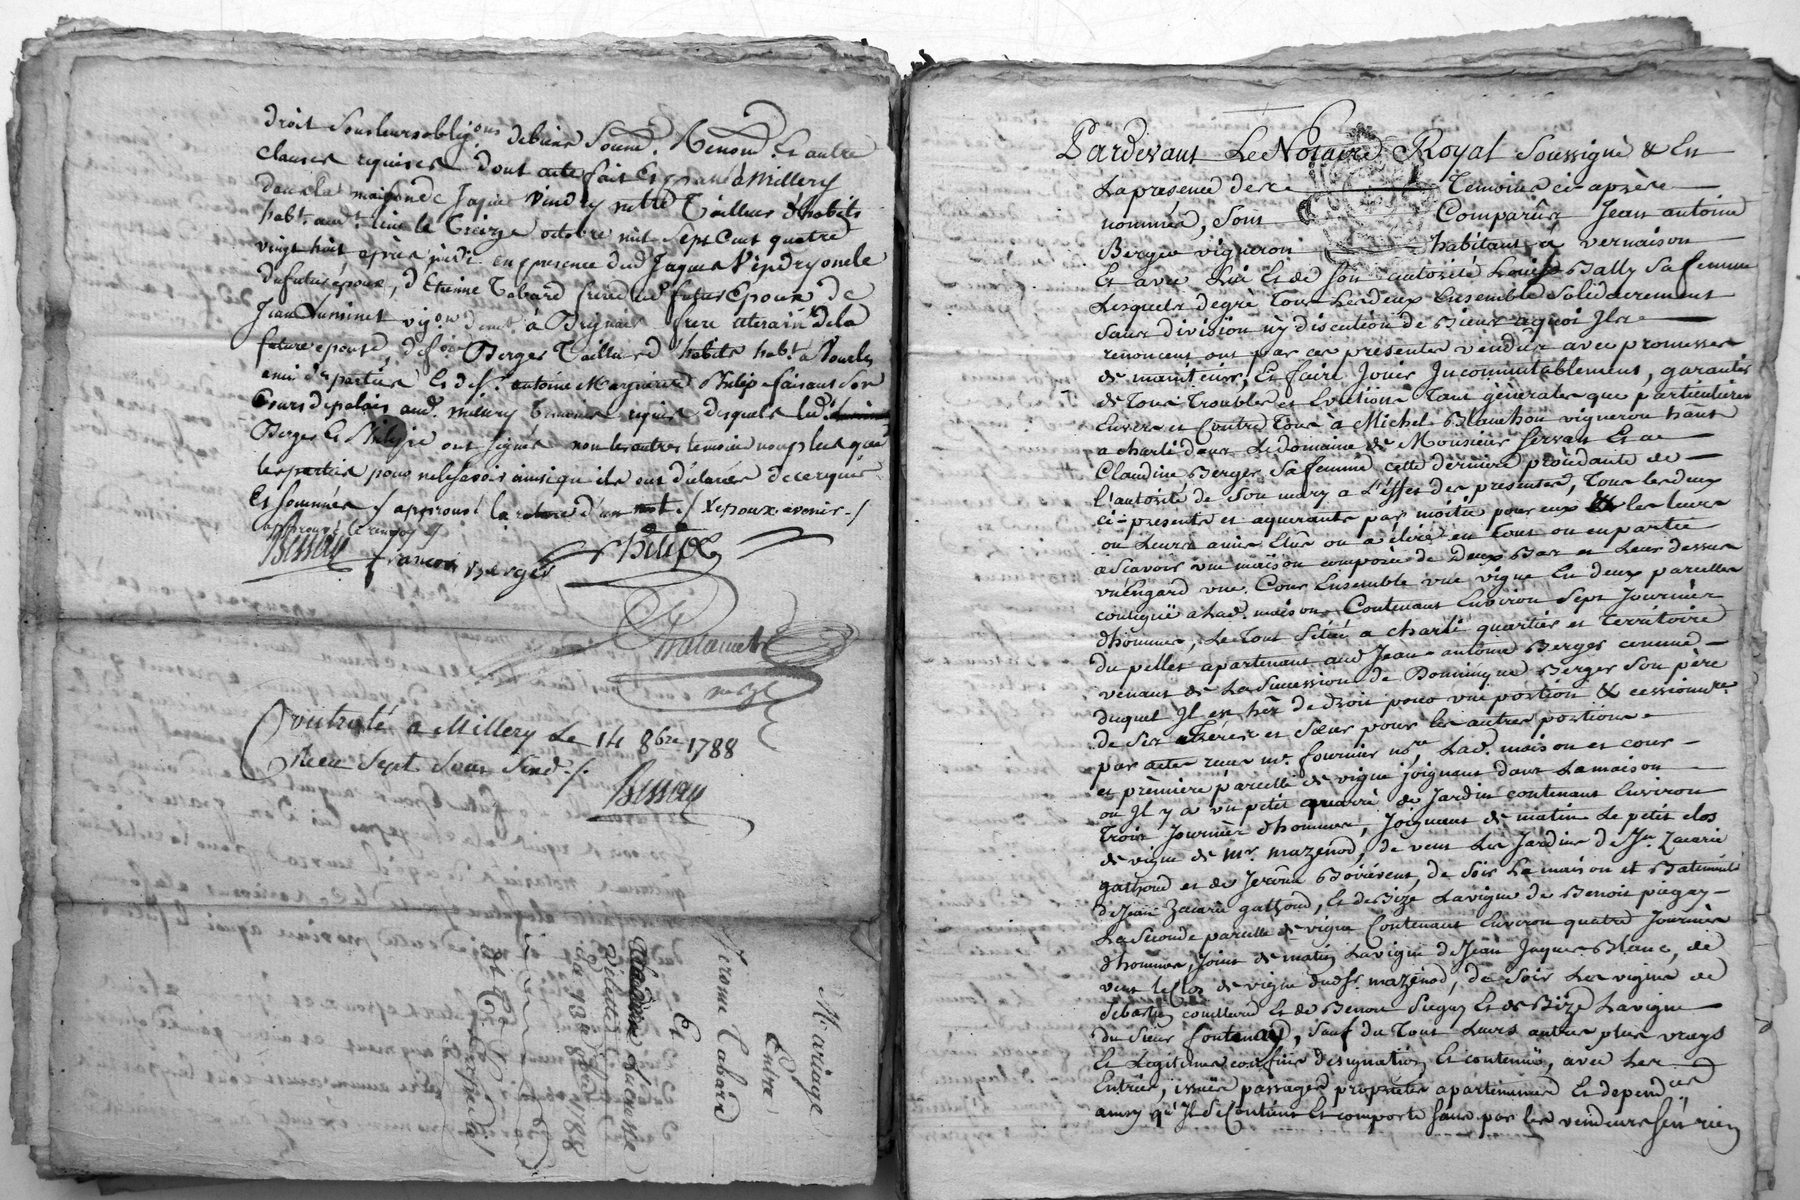 droit sous leurs obligons de biens soumd. Renond. Et autre
clauses requises dont acte fait et passé à Millery
dans la maison de Jaque Vindry mtre Tailleur d'habits
habt. aud. lieu le treize octobre mil sept cent quatre
vingt huit après midi en presence dud Jaques Vindry oncle
du futur époux, d'Etienne Tabard frere du futur Epoux de
Jean Luminet vigon demt à Brignais frere uterain de la
future epouse, de Berger Tailleur d'habits habt. à Vourles
amis des parties Et de Sr. antoine Marguerie Philip faisant son
Cours de palais aud. Millery temoins requis desquels led.
Berger Et Philip ont signés non les autres temoins non plus que
les parties pour ne le sçavoir ainsi qu'ils ont déclarés de ce requis
Et sommés / approuvé la rature d'un mot / X epoux avenir /
approuvé le renvoy
Bessay françois Berger Philip
Controlé à Millery Le 14 8bre 1788
Reçu Sept Sous Sixd. /.
Bessay
Mariage
Entre
Jerome Tabard
Et
Claudine Lucenne
Pilette
du 13e 8bre 1788
Expedié
Pardevant Le Notaire Royal Soussigné & En
La presence de Temoins ci-après
nommés, Sont Comparûs Jean antoine
Berger vigneron habitant à vernaison
Et avec Lui Et de son autorité Louise Bally sa femme
Lesquels de gré Tous Les deux Ensemble Solidairement
Sans division n'y discution de Biens aquoi Ils
renoncent ont par ces presentes vendus avec promesses
de maintenir, Et faire Jouir Incommutablement, garantir
de Tous Troubles et Evictions Tant générales que particulieres
Envers et Contre Tous à Michel Blanchon vigneron habt
a charli dans Le domaine de Monsieur Servan Et a
Claudine Berger Sa femme cette derniere procédante de
l'autorité de Son mary a L'effet des presentes, Tous les deux
ci-presents et aquerants par moitié pour eux & les leurs
ou Leurs amis Elûs ou a élire en Tout ou en partie
aScavoir une maison composée de Deux Bas et Leur dessus
un Engard une Cour Ensemble une vigne En deux parcelles
contigüe a Lad. maison Contenant Environ Sept Journées
d'hommes, Le Tout Situé a charli quartier et Territoire
du pillet apartenant aud Jean-antoine Berger comme
venant de La Succession de Dominique Berger Son père
duquel Il est her de droit pour une portion & cessionnre
de Ses freres et Sœur pour les autres portions
par actes reçus me. fournier nore Lad. maison et cour
et première parcelle de vigne joignant dans La maison
où Il y a un petit quarré de Jardin contenant Environ
Trois Journées d'hommes, Joignent de matin Le petit clos
de vigne de Mr. Mazenod, de vent Les Jardins de Jn. Zacarie
gathoud et de Jerôme Boirivent, de Soir La maison et Batiments
de Jean Zacarie gathoud, Et de Bize La vigne de Benoit piegay
La Seconde parcelle de vigne Contenant Environ quatre Journées
d'hommes, joint de matin La vigne de Jean Jaques Blanc, de
vent Le Clos de vigne dud Sr. Mazenod, de Soir Les vignes de
Sebastien couillard Et de Benoit Piegay Et de Bize La vigne
du Sieur fontenay, Sauf du Tout Leurs autres plus vrays
Et Legitimes confins designation Et contenüe, avec Les
Entrées, issües passages proprietés apartenances Et dependces
ainsy qu'Il Se Contient Et comporte Sans par les vendeurs S'en rien